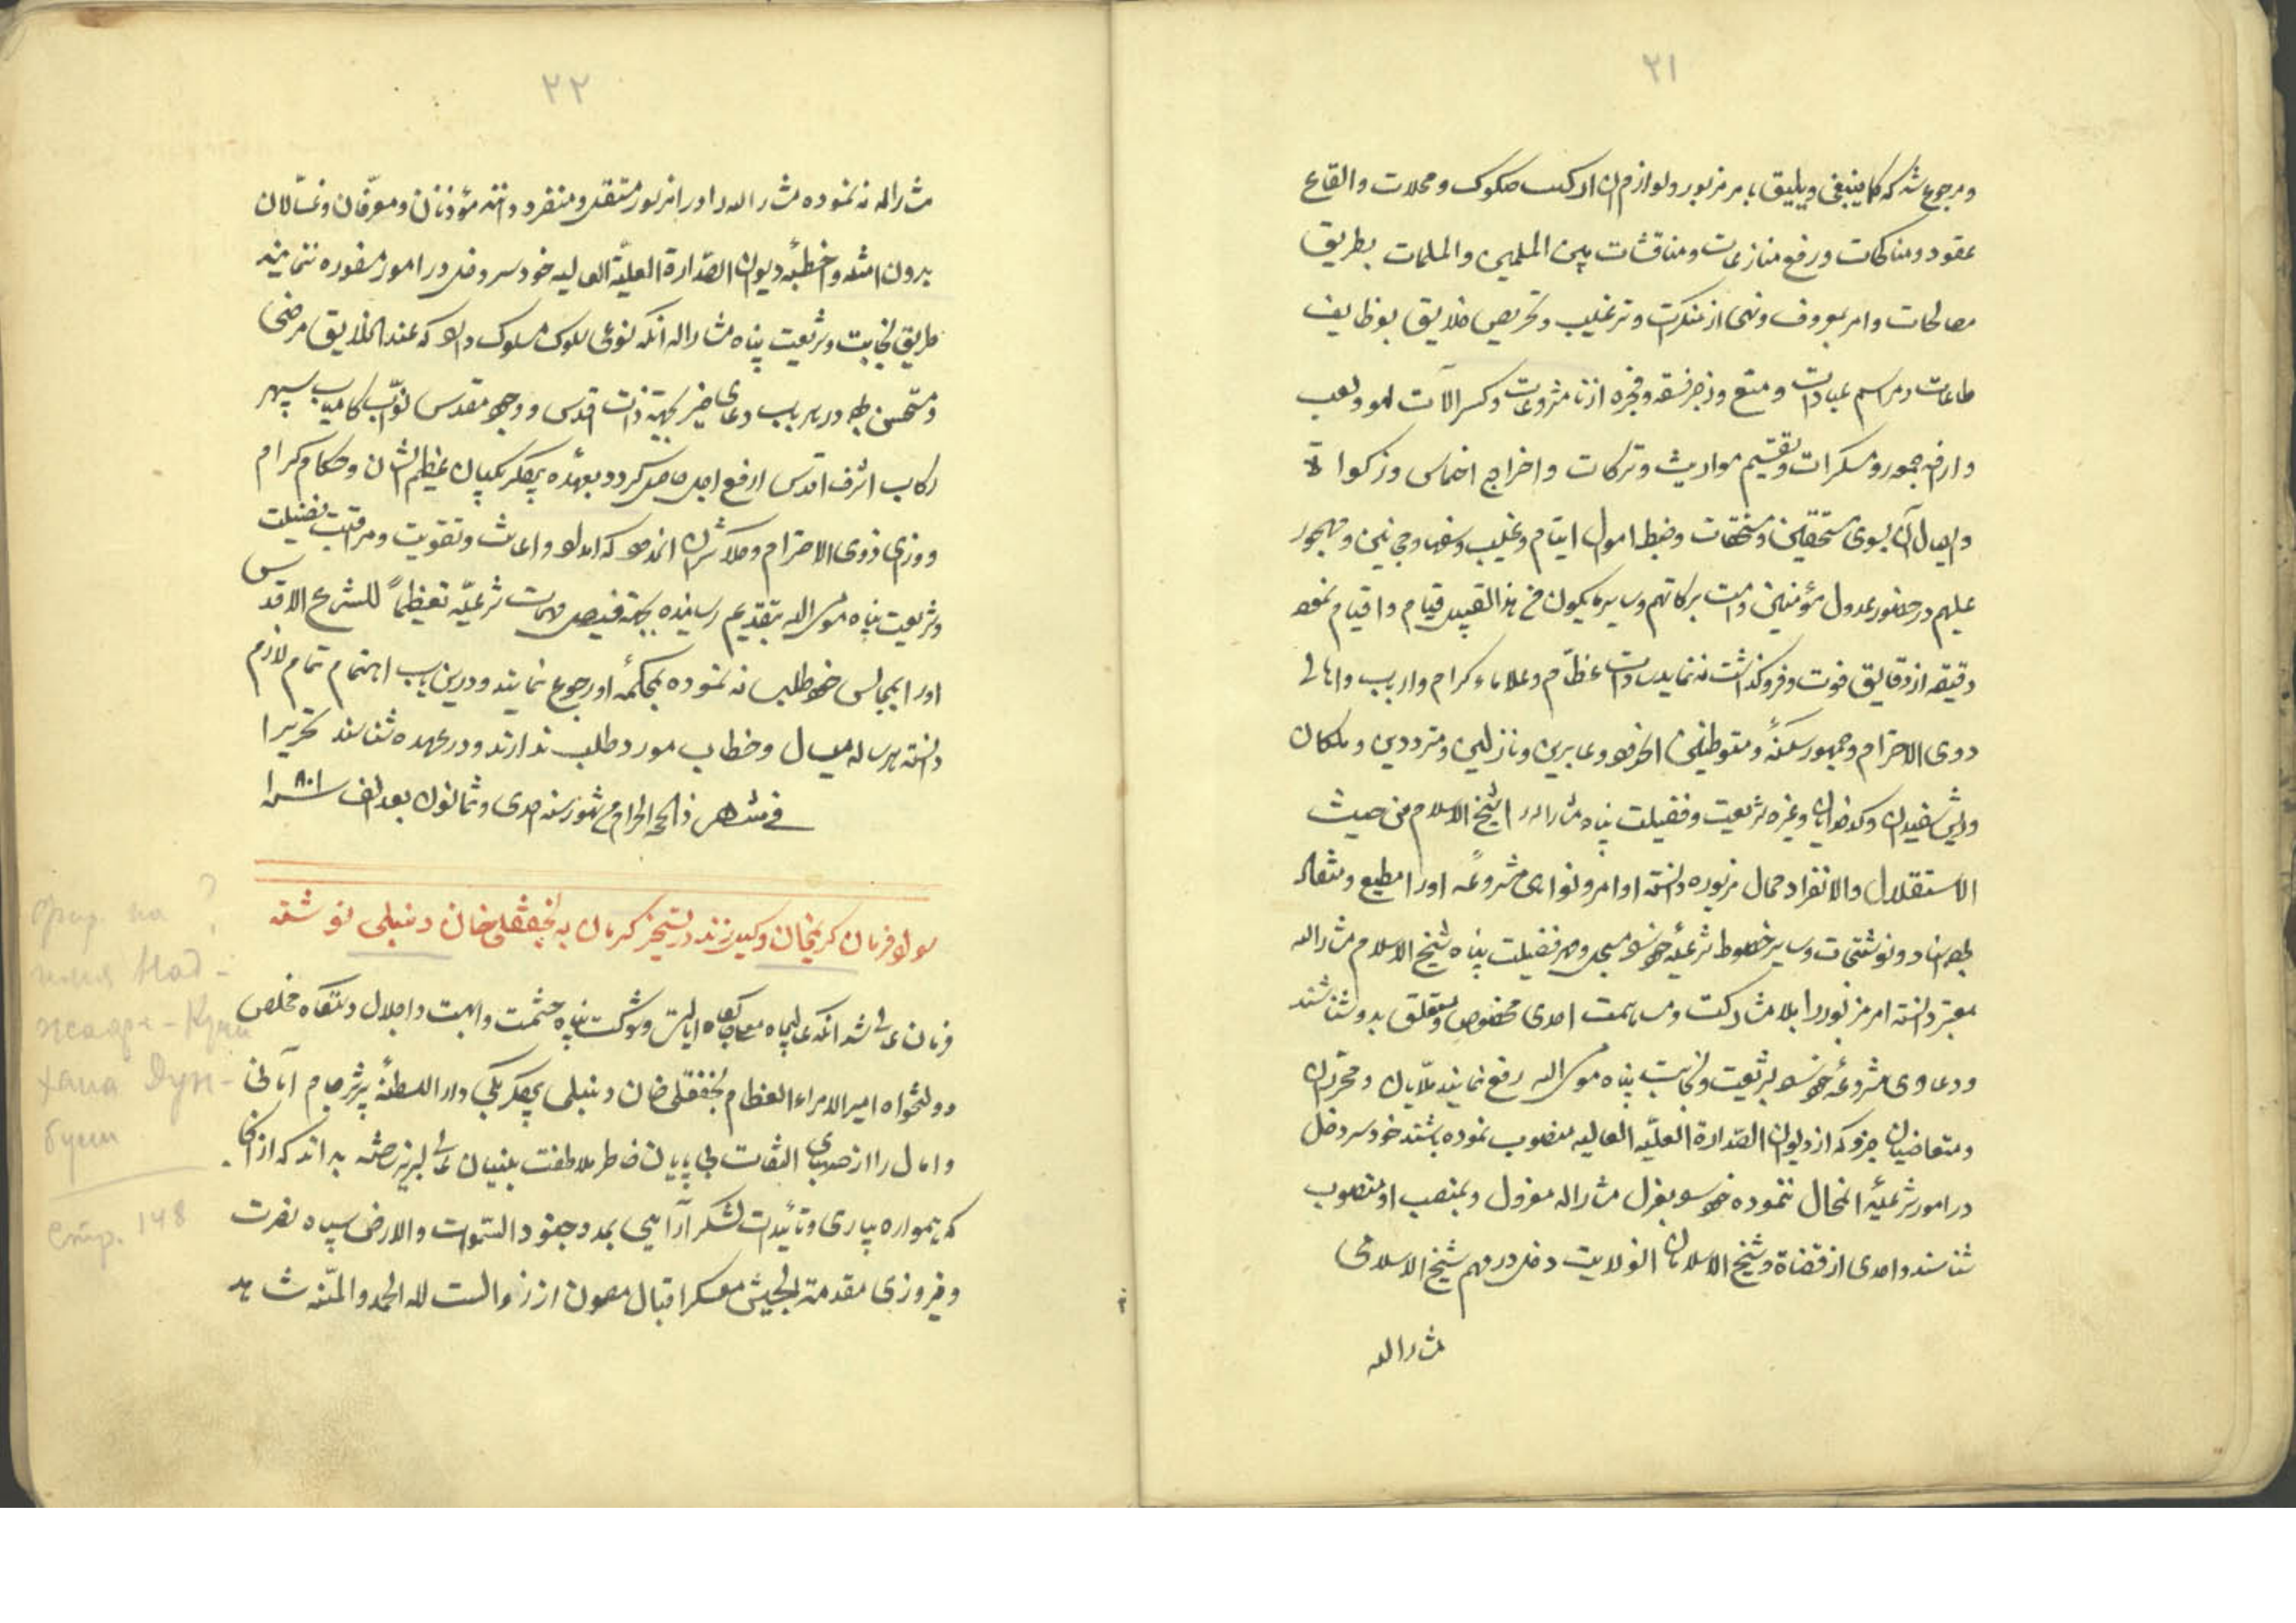 ٢١
و مرجوع شد که کما ینبغی و یلیق بامر مزبور و لوازم آن از کتب صکوک و محلات و القاع
عقود و مناکحات و رفع منازعات و مناقشات بین المسلمین و المسلمات بطریق
مصالحات و امر بمعروف و نهی از منکرات و ترغیب و تحریص خلایق بوظایف
طاعات و مراسم عبادات و منع و زجر فسقه و فجره از نامشروعات و کسر آلات لهو و لعب
و خمور و مسکرات و تقسیم مواریث و ترکات و اخراج اخماس و زکواة
و ایصال آن بسوی مستحقین و مستحقات و ضبط اموال ایتام و غیب و سفها و مجانین و مهجور
علیهم در حضور عدول مؤمنین دامت برکاتهم و سایر ما یکون من هذا القبیل قیام و اقدام نموده
دقیقه از دقایق فوت و فروگذاشت ننماید سادات عظام و علماء کرام و ارباب و اهالی
ذوی الاحترام و جمهور سکنه و متوطنین و عابرین و نازلین و مترددین و ملکان
و ریش سفیدان و کدخدایان و غیره شریعت و فضیلت پناه مشارالیه را شیخ الاسلام من حیث
الاستقلال و الانفراد محال مزبوره دانسته اوامر و نواهی مشروعه او را مطیع و منقاد
بوده اسناد و نوشتجات و سایر خطوط شرعیه خود بسجل و مهر فضیلت پناه شیخ الاسلام مشارالیه
معتبر دانسته امر مزبور را بلا مشارکت و مساهمت احدی مخصوص و متعلق بدو شناسند
و دعاوی مشروعه خود بشریعت و نجابت پناه مومی الیه رفع نمایند ملایان و محرران
و متقاضیان جزو که از دیوان الصدارة العلیه العالیه منصوب نموده باشند خود سر دخل
در امور شرعیه المحال ننموده خود را بعزل مشارالیه معزول و بمنصب او منصوب
شناسند و احدی از قضاة و شیخ الاسلامان الولایت دخل در مهم شیخ الاسلامی
مشارالیه
٢٢
مشارالیه نه نموده مشارالیه را در امر مزبور مستقل و منفرد دانند مؤذنان و معرفان و غسالان
بدون امثله و اخطبه دیوان الصدارة العلیة العالیه خود سر دخل در امور مزبوره ننمایند
طریق نجابت و شریعت پناه مشارالیه آنکه نوعی سلوک مسلوک دارد که عند الخلایق مرضی
و مستحسن بوده در هر باب دعای خیر بجهة ذات اقدس و وجود مقدس نواب کامیاب سپهر
رکاب اشرف اقدس ارفع اعلی حاصل گردد و بعهده بیگلربیگیان عظیم الشان و حکام کرام
و وزرای ذوی الاحترام و کلانتران آنکه امداد و اعانت و تقویت و مراقبت فضیلت
و شریعت پناه مومی الیه بتقدیم رسانیده بجهة فیصل مهمات شرعیه تعظیماً للشرع الاقدس
او را بمجالس خود طلب نه نموده بمحکمه او رجوع نمایند و درین باب اهتمام تمام لازم
دانسته هر ساله مثال و خطاب مورد طلب ندارند و در عهده شناسند تحریرا
فی شهر ذالحجه الحرام من شهور سنه احدی و ثمانون بعد الف سنه ١٠٨١
سواد فرمان کریمخان وکیل زند در تسخیر کرمان به نجفقلی خان دنبلی نوشته
فرمان عالی شد آنکه عالیجاه معلی جایگاه ایالت و شوکت پناه حشمت و ابهت و اجلال دستگاه مخلص
دولتخواه امیر الامراء العظام نجفقلی خان دنبلی بیگلربیگی دار السلطنه تبریز جام آمانی
و آمال را از صهبای التفات بی پایان خاطر ملاطفت بنیان عالی لبریز داشته بداند که از آنجا
که همواره بیاری و تأییدات لشکر آرایی بمدد جنود السموات و الارض سپاه نصرت
و فیروزی مقدمة الجیش معسکر اقبال مصون از زوالست لله الحمد و المنه شاهد
фир. на ?
имя Над-
жафи-Кули
хана Дун-
були
стр. 148